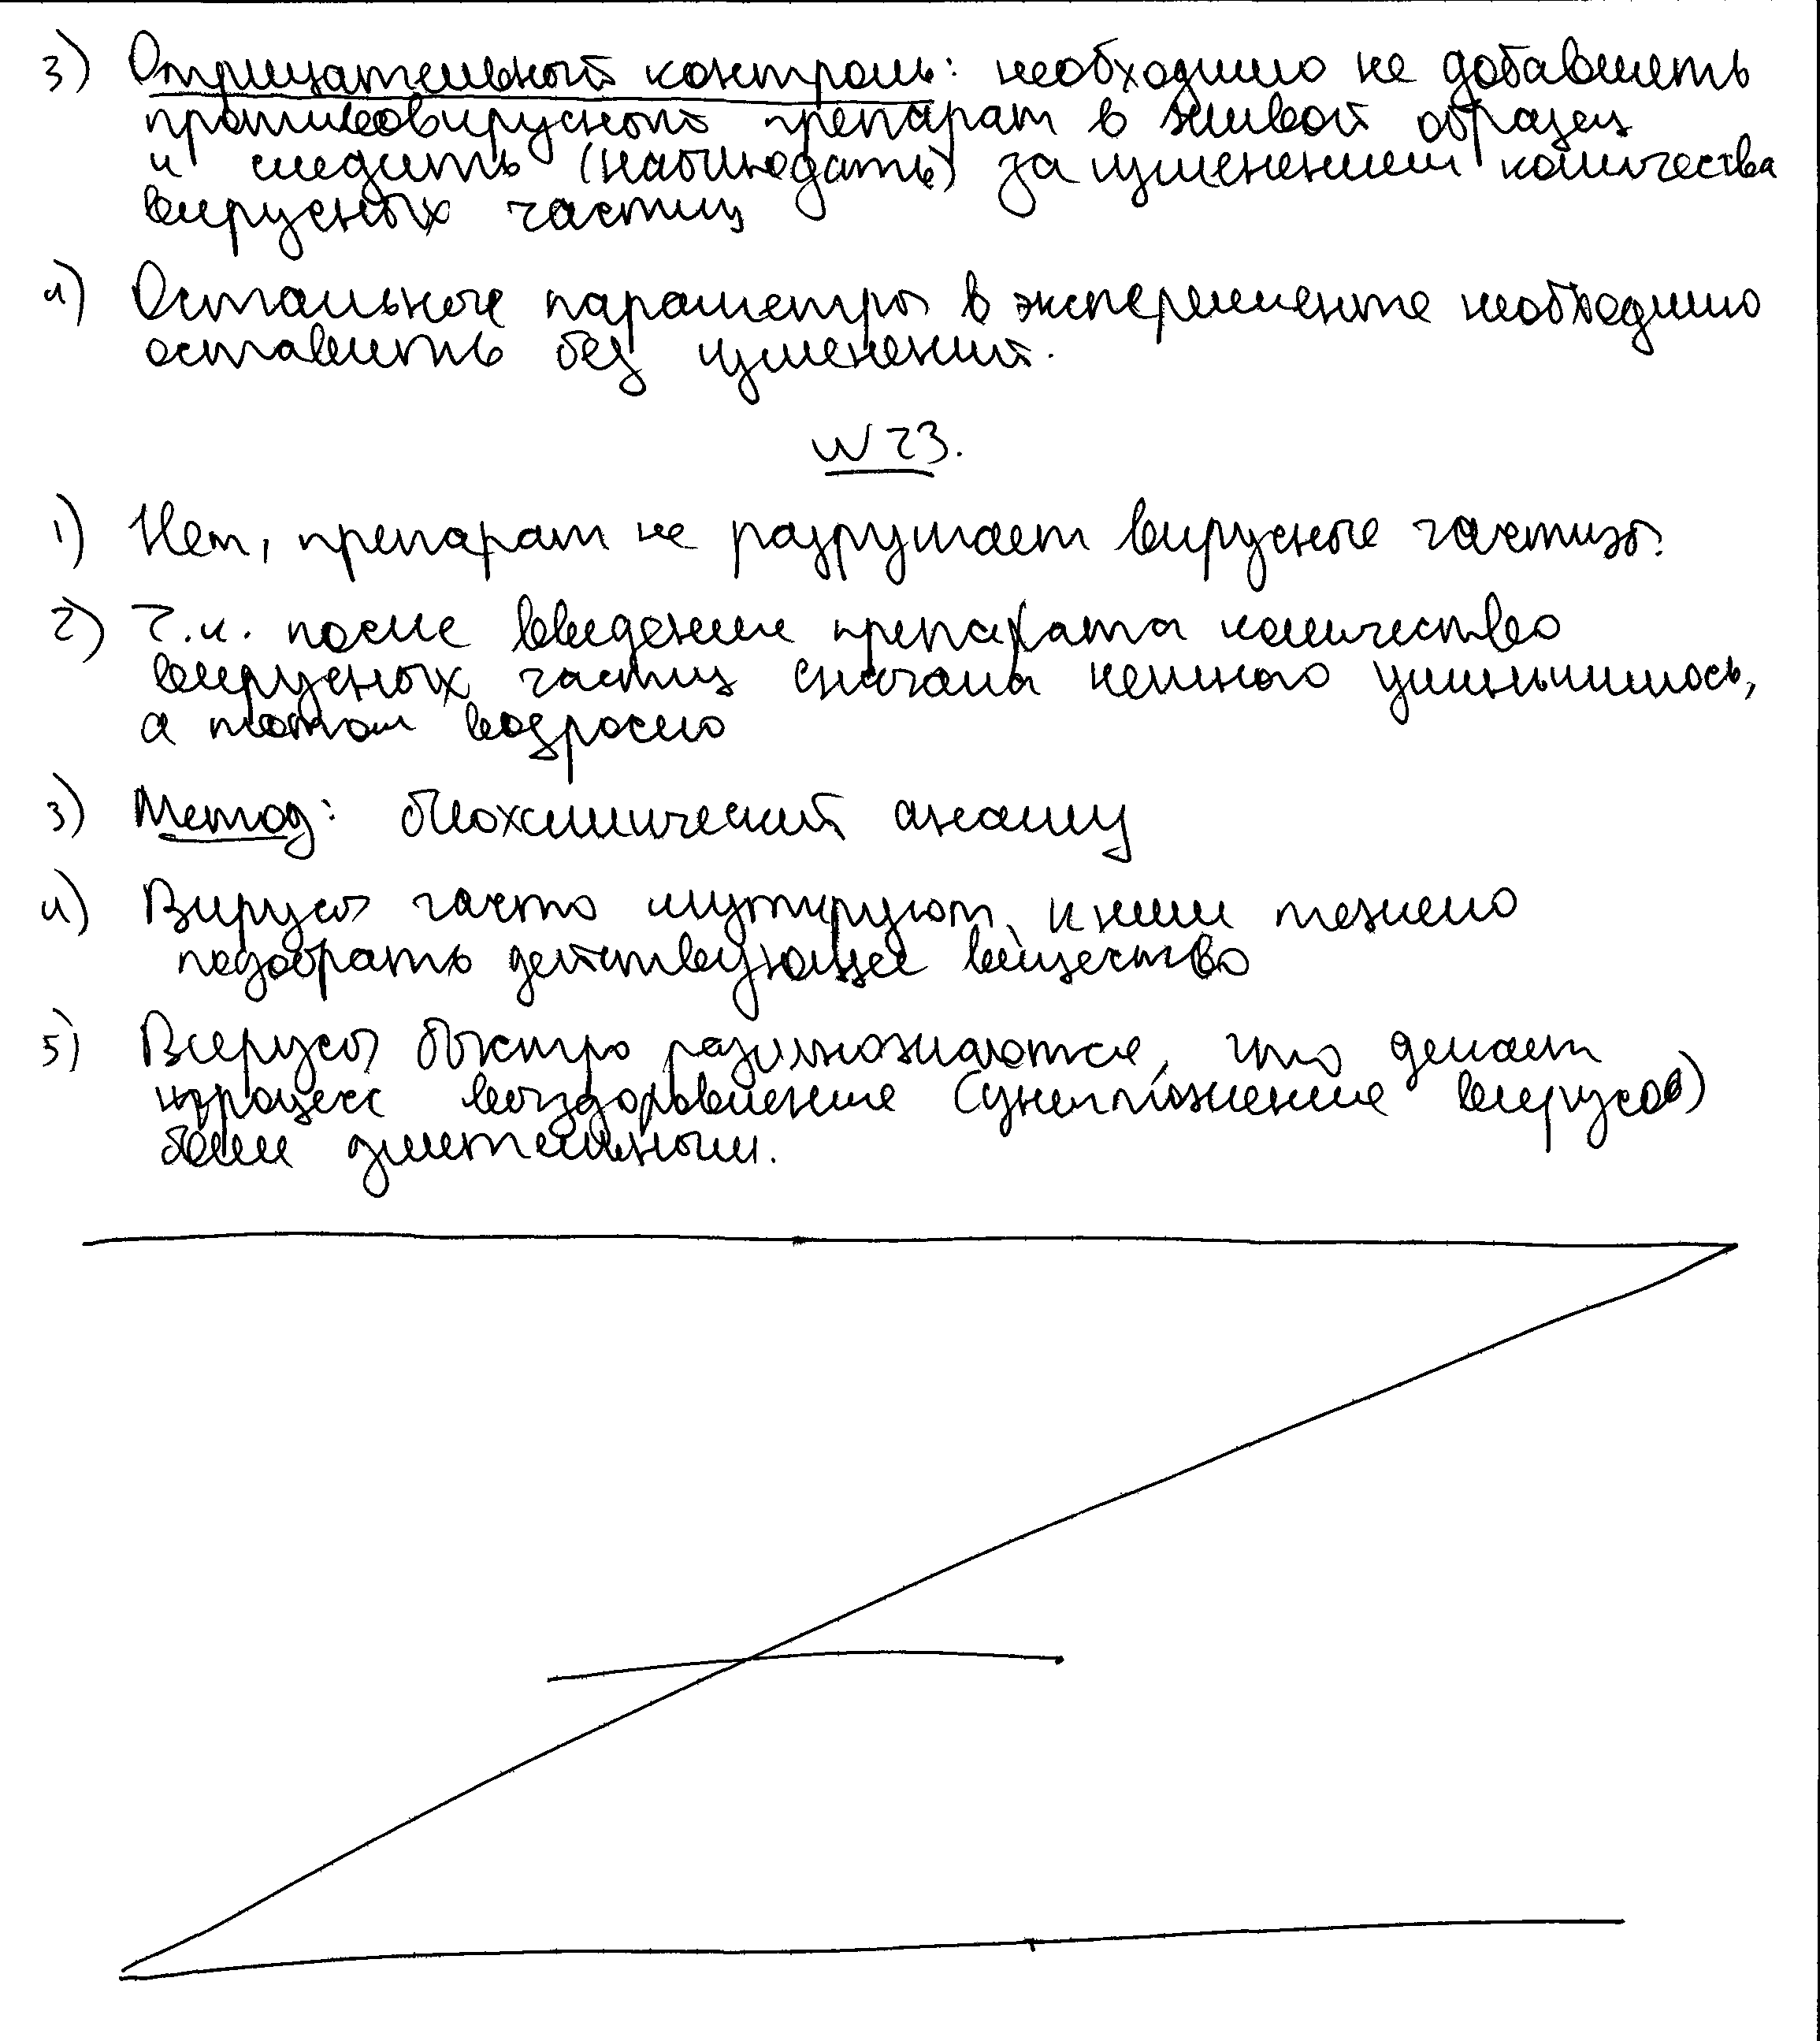 3) Отрицательный контроль: необходимо не добавлять
противовирусный препарат в живой образец
и следить (наблюдать) за изменением количества
вирусных частиц
4) Остальные параметры в эксперименте необходимо
оставить без изменений.
№ 23.
1) Нет, препарат не разрушает вирусные частицы.
2) Т.к. после введения препарата количество
вирусных частиц сначала немного уменьшилось,
а потом возросло
3) Метод: биохимический анализ
4) Вирусы часто мутируют, к ним тяжело
подобрать действующее вещество
5) Вирусы быстро размножаются, что делает
процесс выздоровления (уничтожения вирусов)
более длительным.